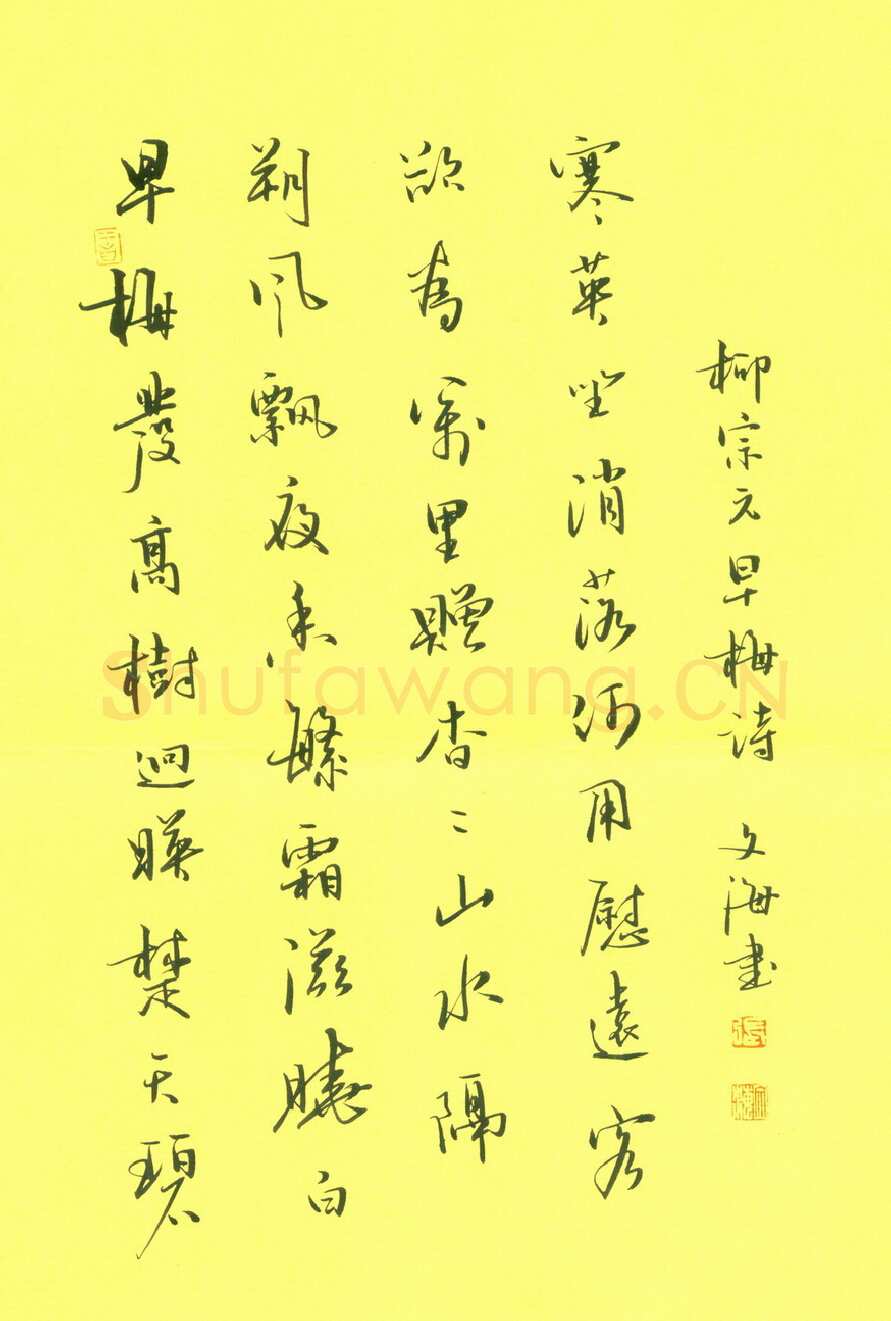 早梅發高樹迥暎楚天碧
朔風飄夜香繁霜滋曉白
欲為萬里贈杳〻山水隔
寒英坐消落何用慰遠客
柳宗元早梅诗 文海書
Shufawang.CN